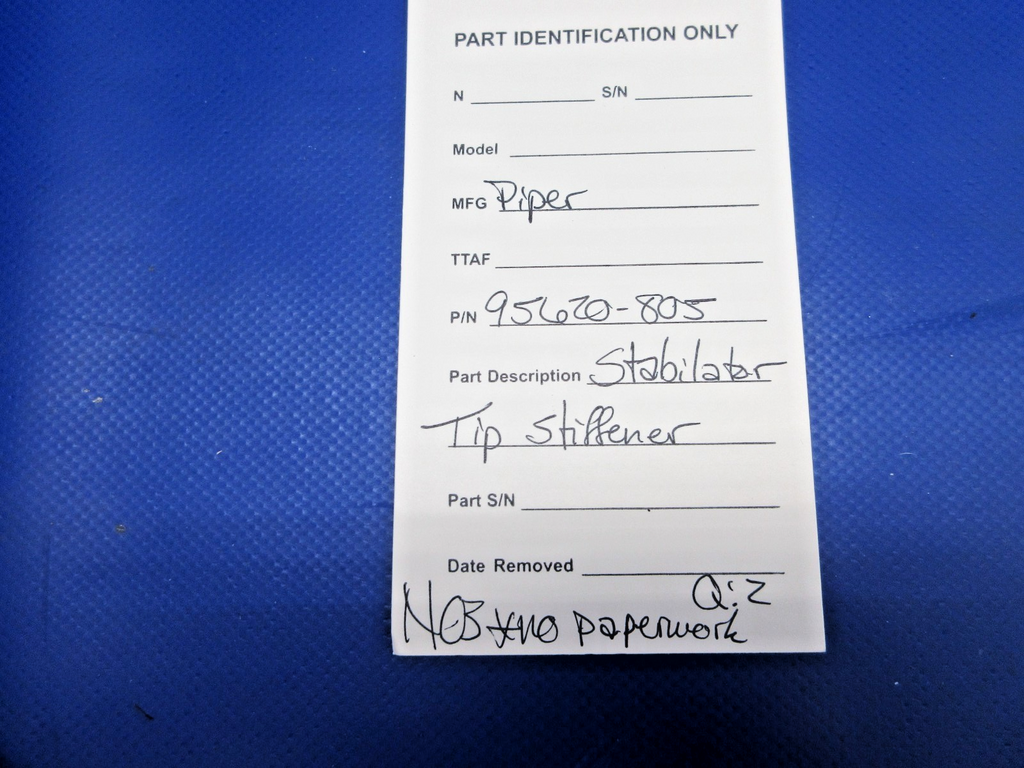 PART IDENTIFICATION ONLY
N S/N
Model
MFG Piper
TTAF
P/N 95620-805
Part Description Stabilator
Tip Stiffener
Part S/N
Date Removed
Q: 2
NOS no paperwork